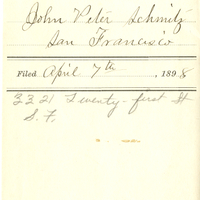 John Peter Schmitz
San Francisco
Filed April 7th, 1898
3321 Twenty-first St
S.F.